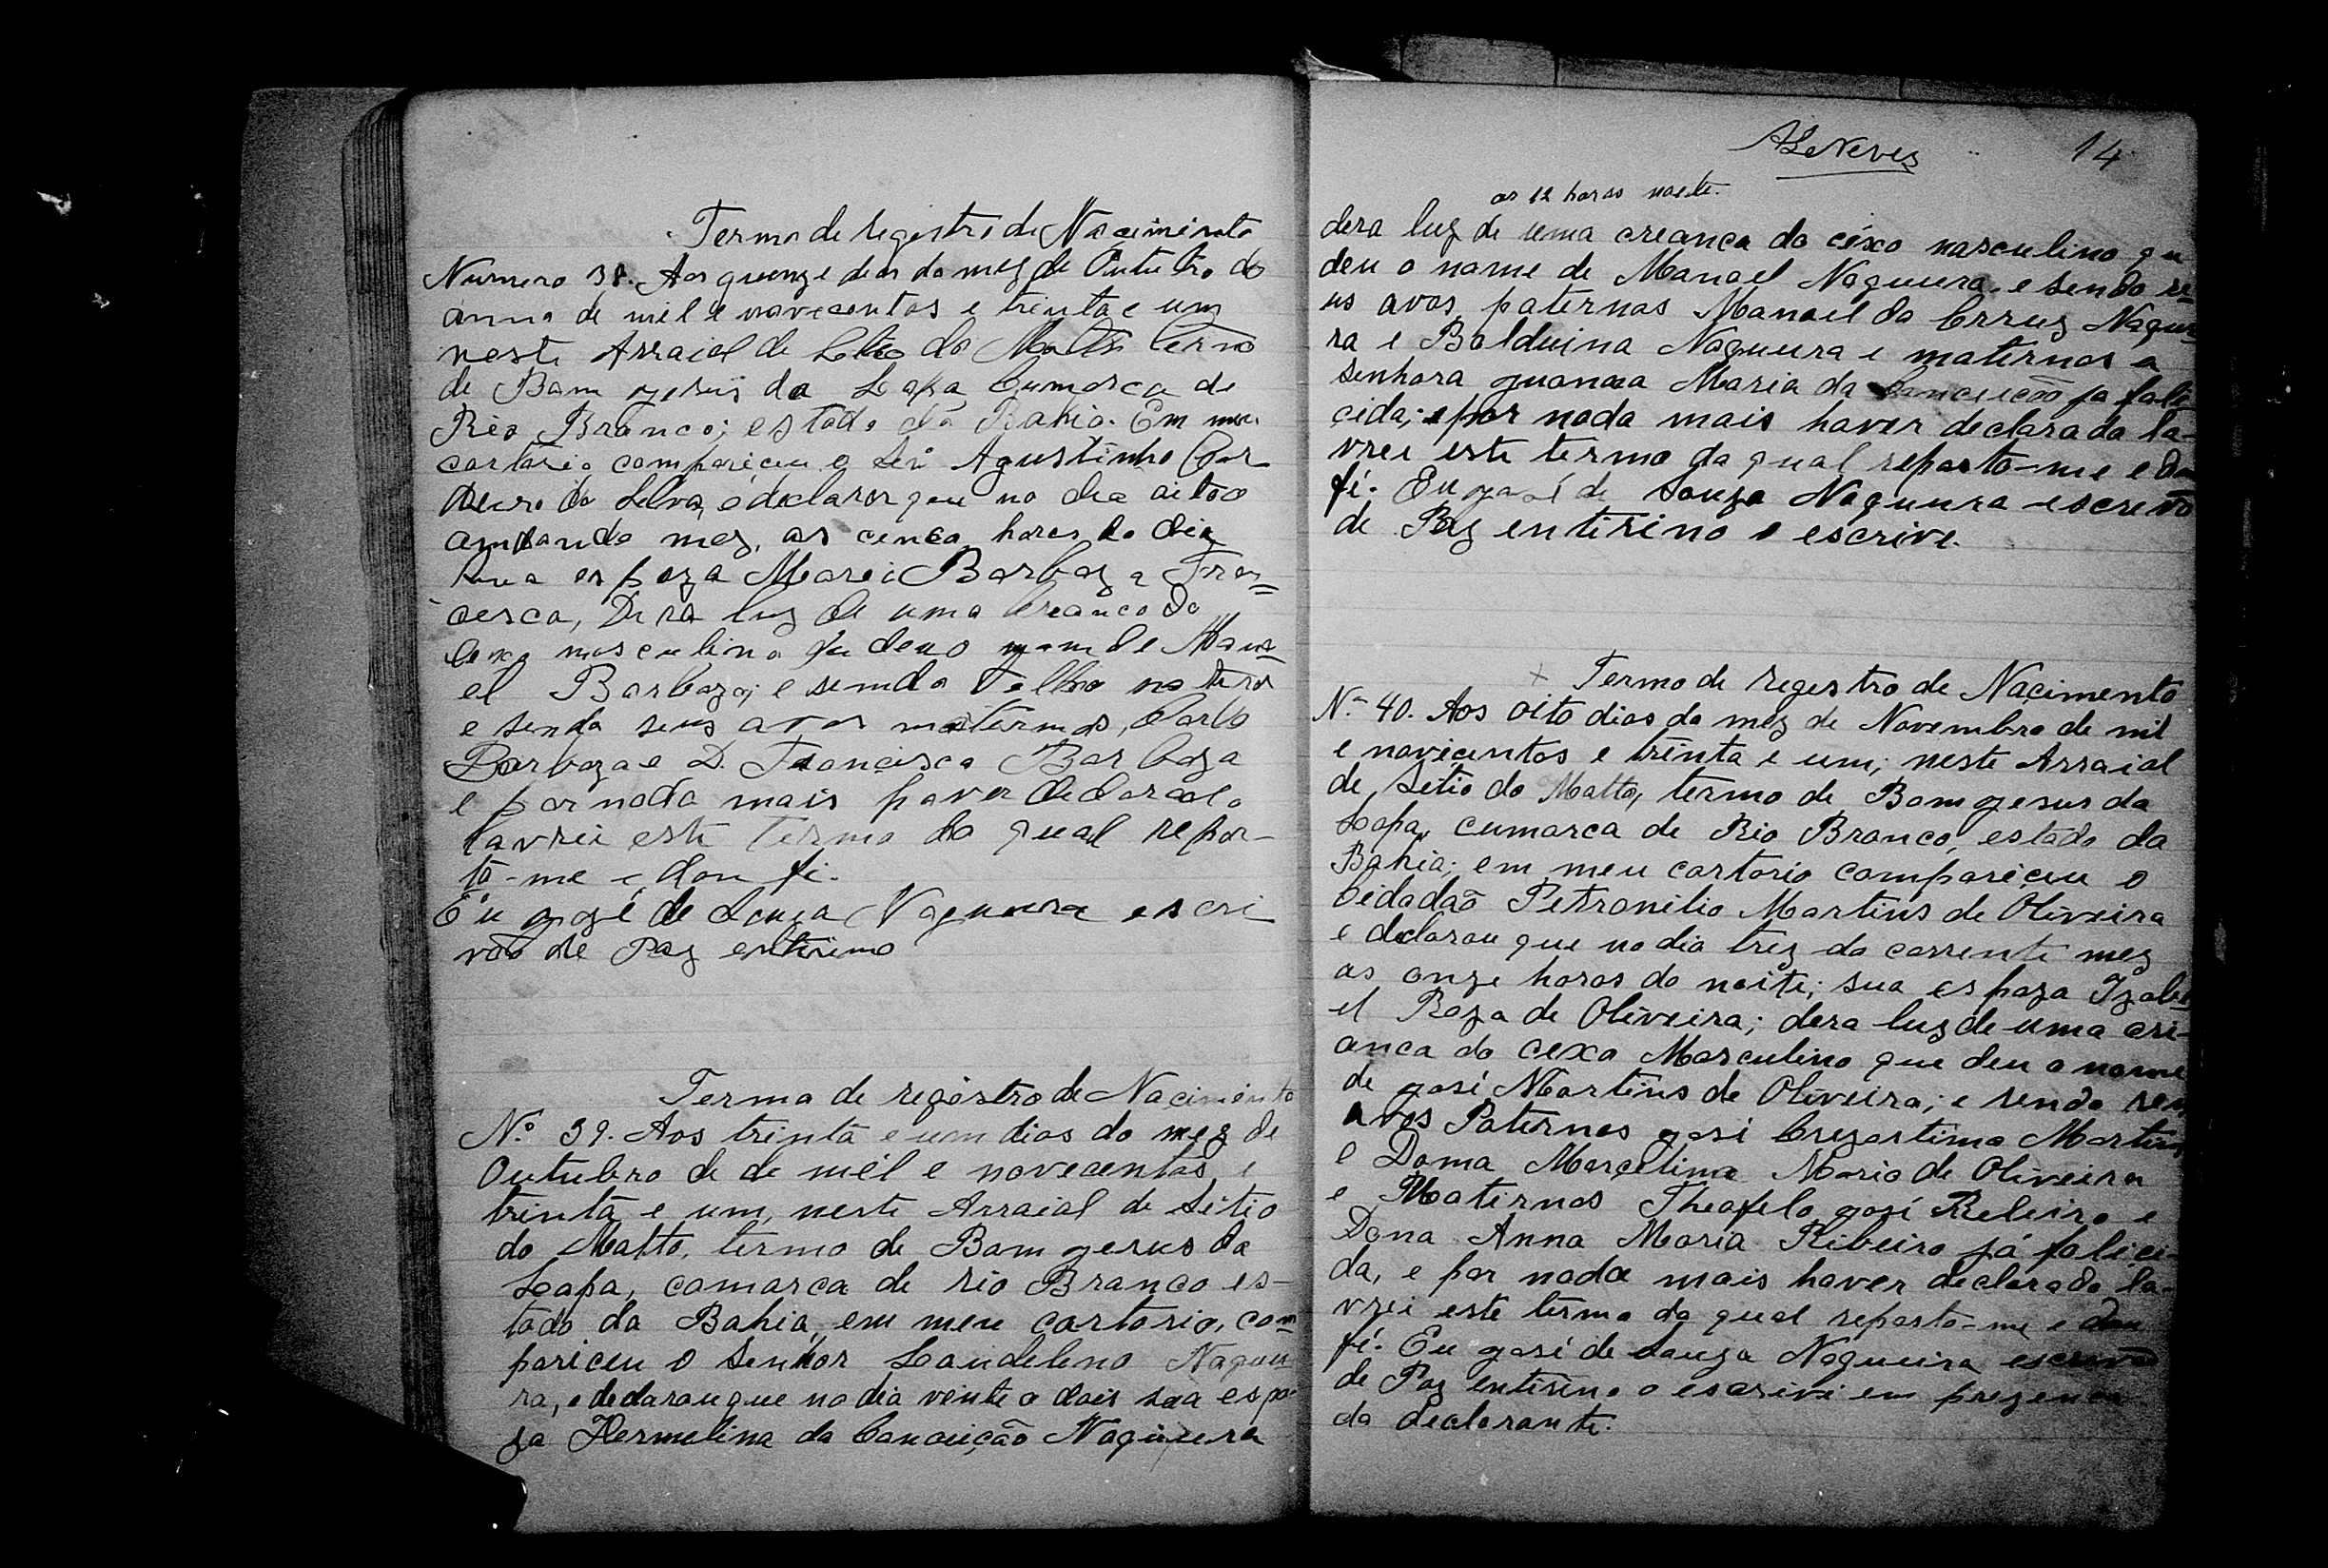 Termo de registro de Nacimento
Numero 38. Aos quenze dias do mez de Outubro do
anno de mil e novecentos e trinta e um
neste Arraial de Setio do Matto termo
de Bom gesus da Lapa Cumarca de
Rio Branco; estado da Bahia. Em meu
cartorio compariceu o Snr Agustinho Cor
deiro da Selva, e declarou que no dia oito
andando mez, as cenco horas do dia
sua espoza Maria Barboza Fran=
cesca, Dera luz de uma Creanca do
cexo masculino que deu o nome de Manu=
el Barboza; e sendo Felho natural
e sendo seus avos maternos, Carlo
Barboza e D. Francisca Barboza
e por nada mais haver declarado
lavrei este termo do qual repor-
to-me e dou fé.
Eu gozé de Souza Nogueira escri
vão de Paz enterino
Termo de registro de Nacimento
Nº 39. Aos trinta e um dias do mez de
Outubro de de mil e novecentos e
trinta e um, neste Arraial de Sitio
do Matto, termo de Bom gesus da
Lapa, comarca de rio Branco es-
tado da Bahia, em meu cartorio, com=
pariceu o Senhor Laudelino Noguei
ra, e declarou que no dia vente e dois sua espo-
za Hermelina da Conceição Nogueira
ALeNeves 14
as 12 horas noite.
dera luz de uma creança do céxo masculino qu
deu o nome de Manoel Nogueira, e sendo se=
us avos, paternos Manoel da Crruz Nogue=
ra e Balduina Nogueira e maternos a
senhora guanna Maria da Conceicão ja fale
cida; e por nada mais haver declarado la-
vrei este termo da qual reporto-me e dou
fé. Eu gosé de Souza Nogueira escrevão
de Paz entirino o escrive.
Termo de registro de Naçimento
Nº 40. Aos oito dias do mez de Novembro de mil
e novicentos e trinta e um; neste Arraial
de Setio do Matto, termo de Bom gesus da
Lapa, cumarca de Rio Branco, estado da
Bahia; em meu cartorio compariçeu o
Cidadão Petronilio Martins de Oliveira
e declarou que no dia trez do corrente mez
as onze horas da noite; sua espoza Izab
el Roza de Oliveira; dera luz de uma cri-
anca do cexo Masculino que deu o nome
de gosé Martins de Oliveira; e sendo seu
avos Paternos gosé Martins
e Dona Marçelina Maria de Oliveira
e Maternos Theofelo gosé Rebeiro e
Dona Anna Maria Ribeiro já faleci-
da, e por nada mais haver declarado la-
vrei este termo da qual reporto-me e dou
fé. Eu gosé de Souza Nogueira escrevão
de Paz enterino o escrivi em prezença
do declarante.